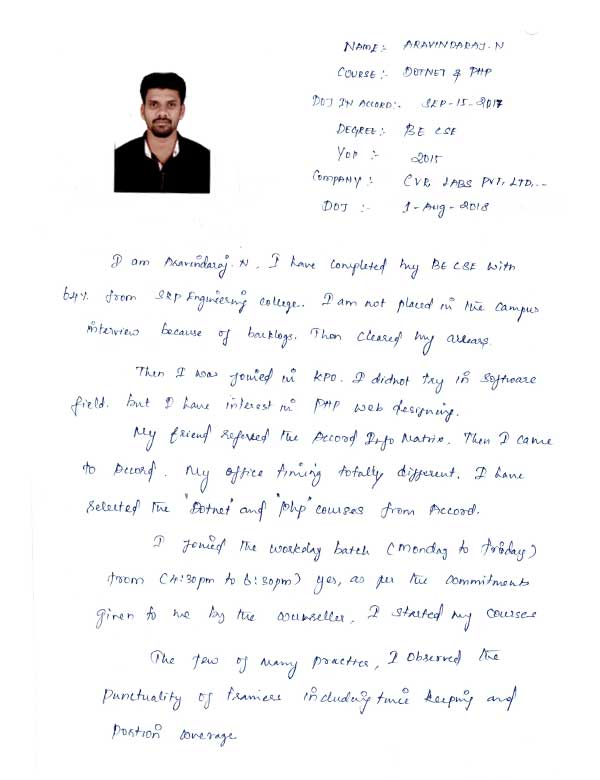 NAME:- ARAVINDARAJ.N
COURSE:- DOTNET & PHP
DOJ IN ACCORD:- SEP-15-2017
DEGREE:- BE CSE
YOP :- 2015
COMPANY :- CVR LABS PVT, LTD,..
DOJ :- 1-Aug-2018
I am Aravindaraj.N, I have completed my BE CSE with
64% from SKP Engineering college. I am not placed in the campus
interview because of backlogs. Then cleared my arrears.
Then I was joined in KPO. I didnot try in software
field. but I have interest in PHP web designing.
My friend referred the Accord Info Matrix. Then I came
to Accord. My office timing totally different. I have
selected the "Dotnet" and "php" courses from Accord.
I joined the workday batch (Monday to Friday)
from (4:30pm to 6:30pm) yes, as per the commitments
given to me by the counseller, I started my courses
The few of many practice, I observed the
punctuality of trainers including time keeping and
portion coverage